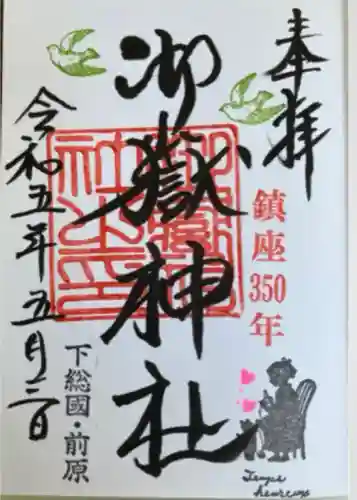 奉拝
鎮座350年
御嶽神社
下総國・前原
令和五年五月三日